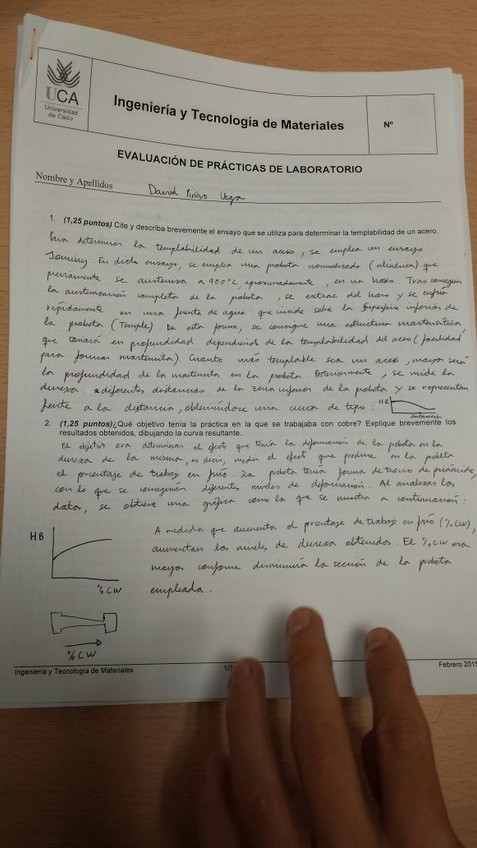 UCA
Universidad
de Cádiz
Ingeniería y Tecnología de Materiales
Nº
EVALUACIÓN DE PRÁCTICAS DE LABORATORIO
Nombre y Apellidos David Vega
1. (1,25 puntos) Cite y describa brevemente el ensayo que se utiliza para determinar la templabilidad de un acero.
Para determinar la templabilidad de un acero, se emplea un ensayo
Jominy. En dicho ensayo, se emplea una probeta normalizada (cilíndrica) que
previamente se austeniza a 900°C, aproximadamente, en un horno. Tras conseguir
la austenización completa de la probeta, se extrae del horno y se enfría
rápidamente en una fuente de agua que incide sobre la superficie inferior de
la probeta (Temple). De esta forma, se consigue una estructura martensítica,
que tomará en profundidad dependiendo de la templabilidad del acero (facilidad
para formar martensita). Cuanto más templable sea un acero, mayor será
la profundidad de la martensita en la probeta. Posteriormente, se mide la
dureza a diferentes distancias de la zona inferior de la probeta y se representan
frente a la distancia, obteniéndose una curva de tipo:
HRC
distancia
2. (1,25 puntos)¿Qué objetivo tenía la práctica en la que se trabajaba con cobre? Explique brevemente los
resultados obtenidos, dibujando la curva resultante.
El objetivo era determinar el efecto que tenía la deformación de la probeta en la
dureza de la misma, es decir, medir el efecto que produce en la probeta
el porcentaje de trabajo en frío. La probeta tenía forma de tronco de pirámide,
con lo que se conseguían diferentes niveles de deformación. Al analizar los
datos, se obtiene una gráfica como la que se muestra a continuación:
HB
% CW
A medida que aumenta el porcentaje de trabajo en frío (% CW),
aumentan los niveles de dureza obtenidos. El % CW era
mayor conforme disminuía la sección de la probeta
empleada.
% CW
Ingeniería y Tecnología de Materiales
Febrero 2015